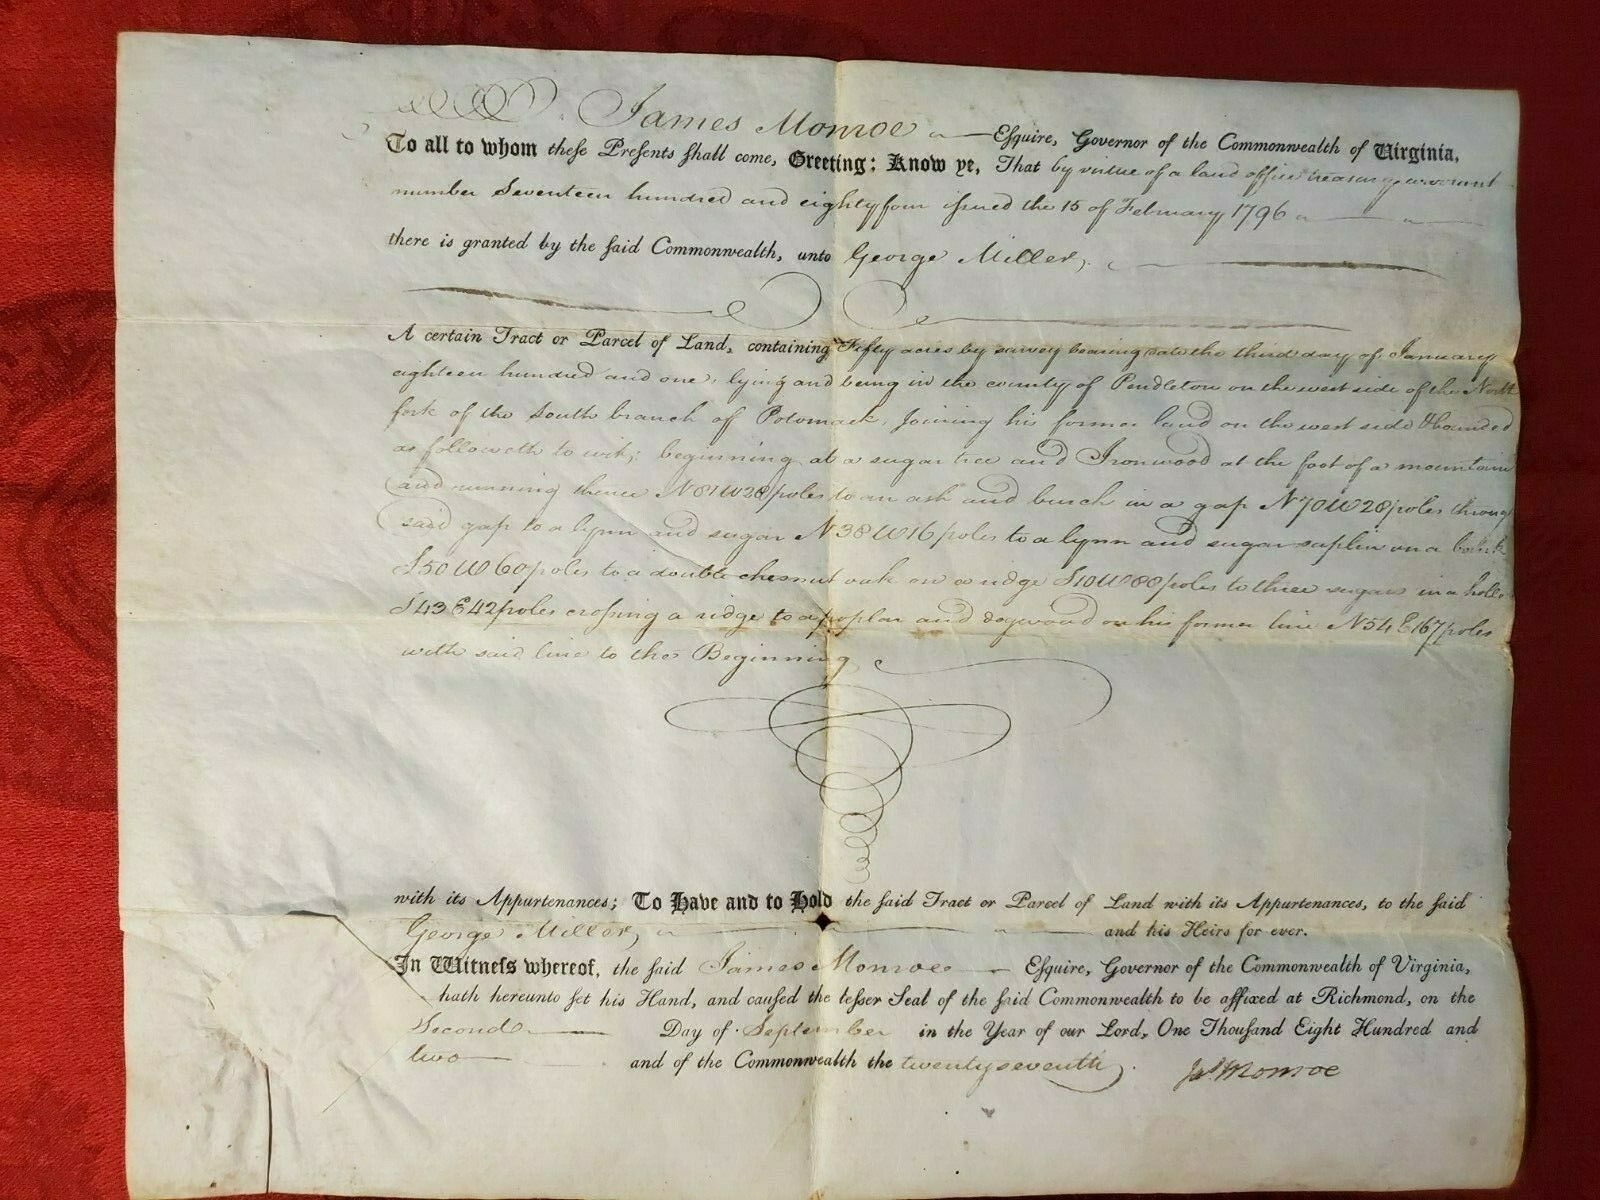 James Monroe Esquire, Governor of the Commonwealth of Virginia,
To all to whom these Presents shall come, Greeting: Know ye, That by virtue of a land office treasury warrant
number Seventeen hundred and eighty four issued the 15 of February 1796
there is granted by the said Commonwealth, unto George Miller,
A certain Tract or Parcel of Land, containing Fifty acres by survey bearing date the third day of January
eighteen hundred and one, lying and being in the county of Pendleton on the west side of the North
fork of the South branch of Potomack, Joining his former land on the west side & bounded
as followeth to wit; beginning at a sugar tree and Ironwood at the foot of a mountain
and running thence N81W28 poles to an ash and burch in a gap N70W28 poles through
said gap to a lynn and sugar N38W16 poles to a lynn and sugar saplin on a
S50W60 poles to a double chesnut oak on a ridge S10W88 poles to three sugars in a hollo
S43E42 poles crossing a ridge to a poplar and dogwood on his former line N54E167 poles
with said line to the Beginning
with its Appurtenances; To Have and to Hold the said Tract or Parcel of Land with its Appurtenances, to the said
George Miller, and his Heirs for ever.
In Witness whereof, the said James Monroe Esquire, Governor of the Commonwealth of Virginia,
hath hereunto set his Hand, and caused the lesser Seal of the said Commonwealth to be affixed at Richmond, on the
Second Day of September in the Year of our Lord, One Thousand Eight Hundred and
two and of the Commonwealth the twenty seventh.
Jas Monroe